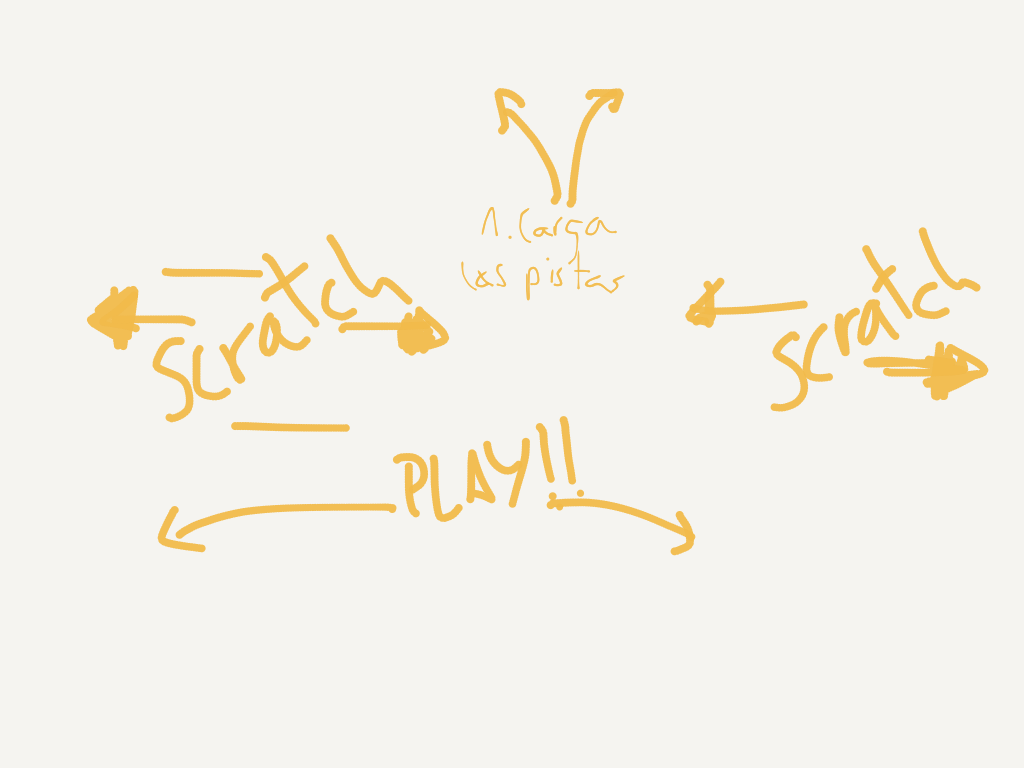 1. Carga
las pistas
Scratch
Scratch
PLAY!!